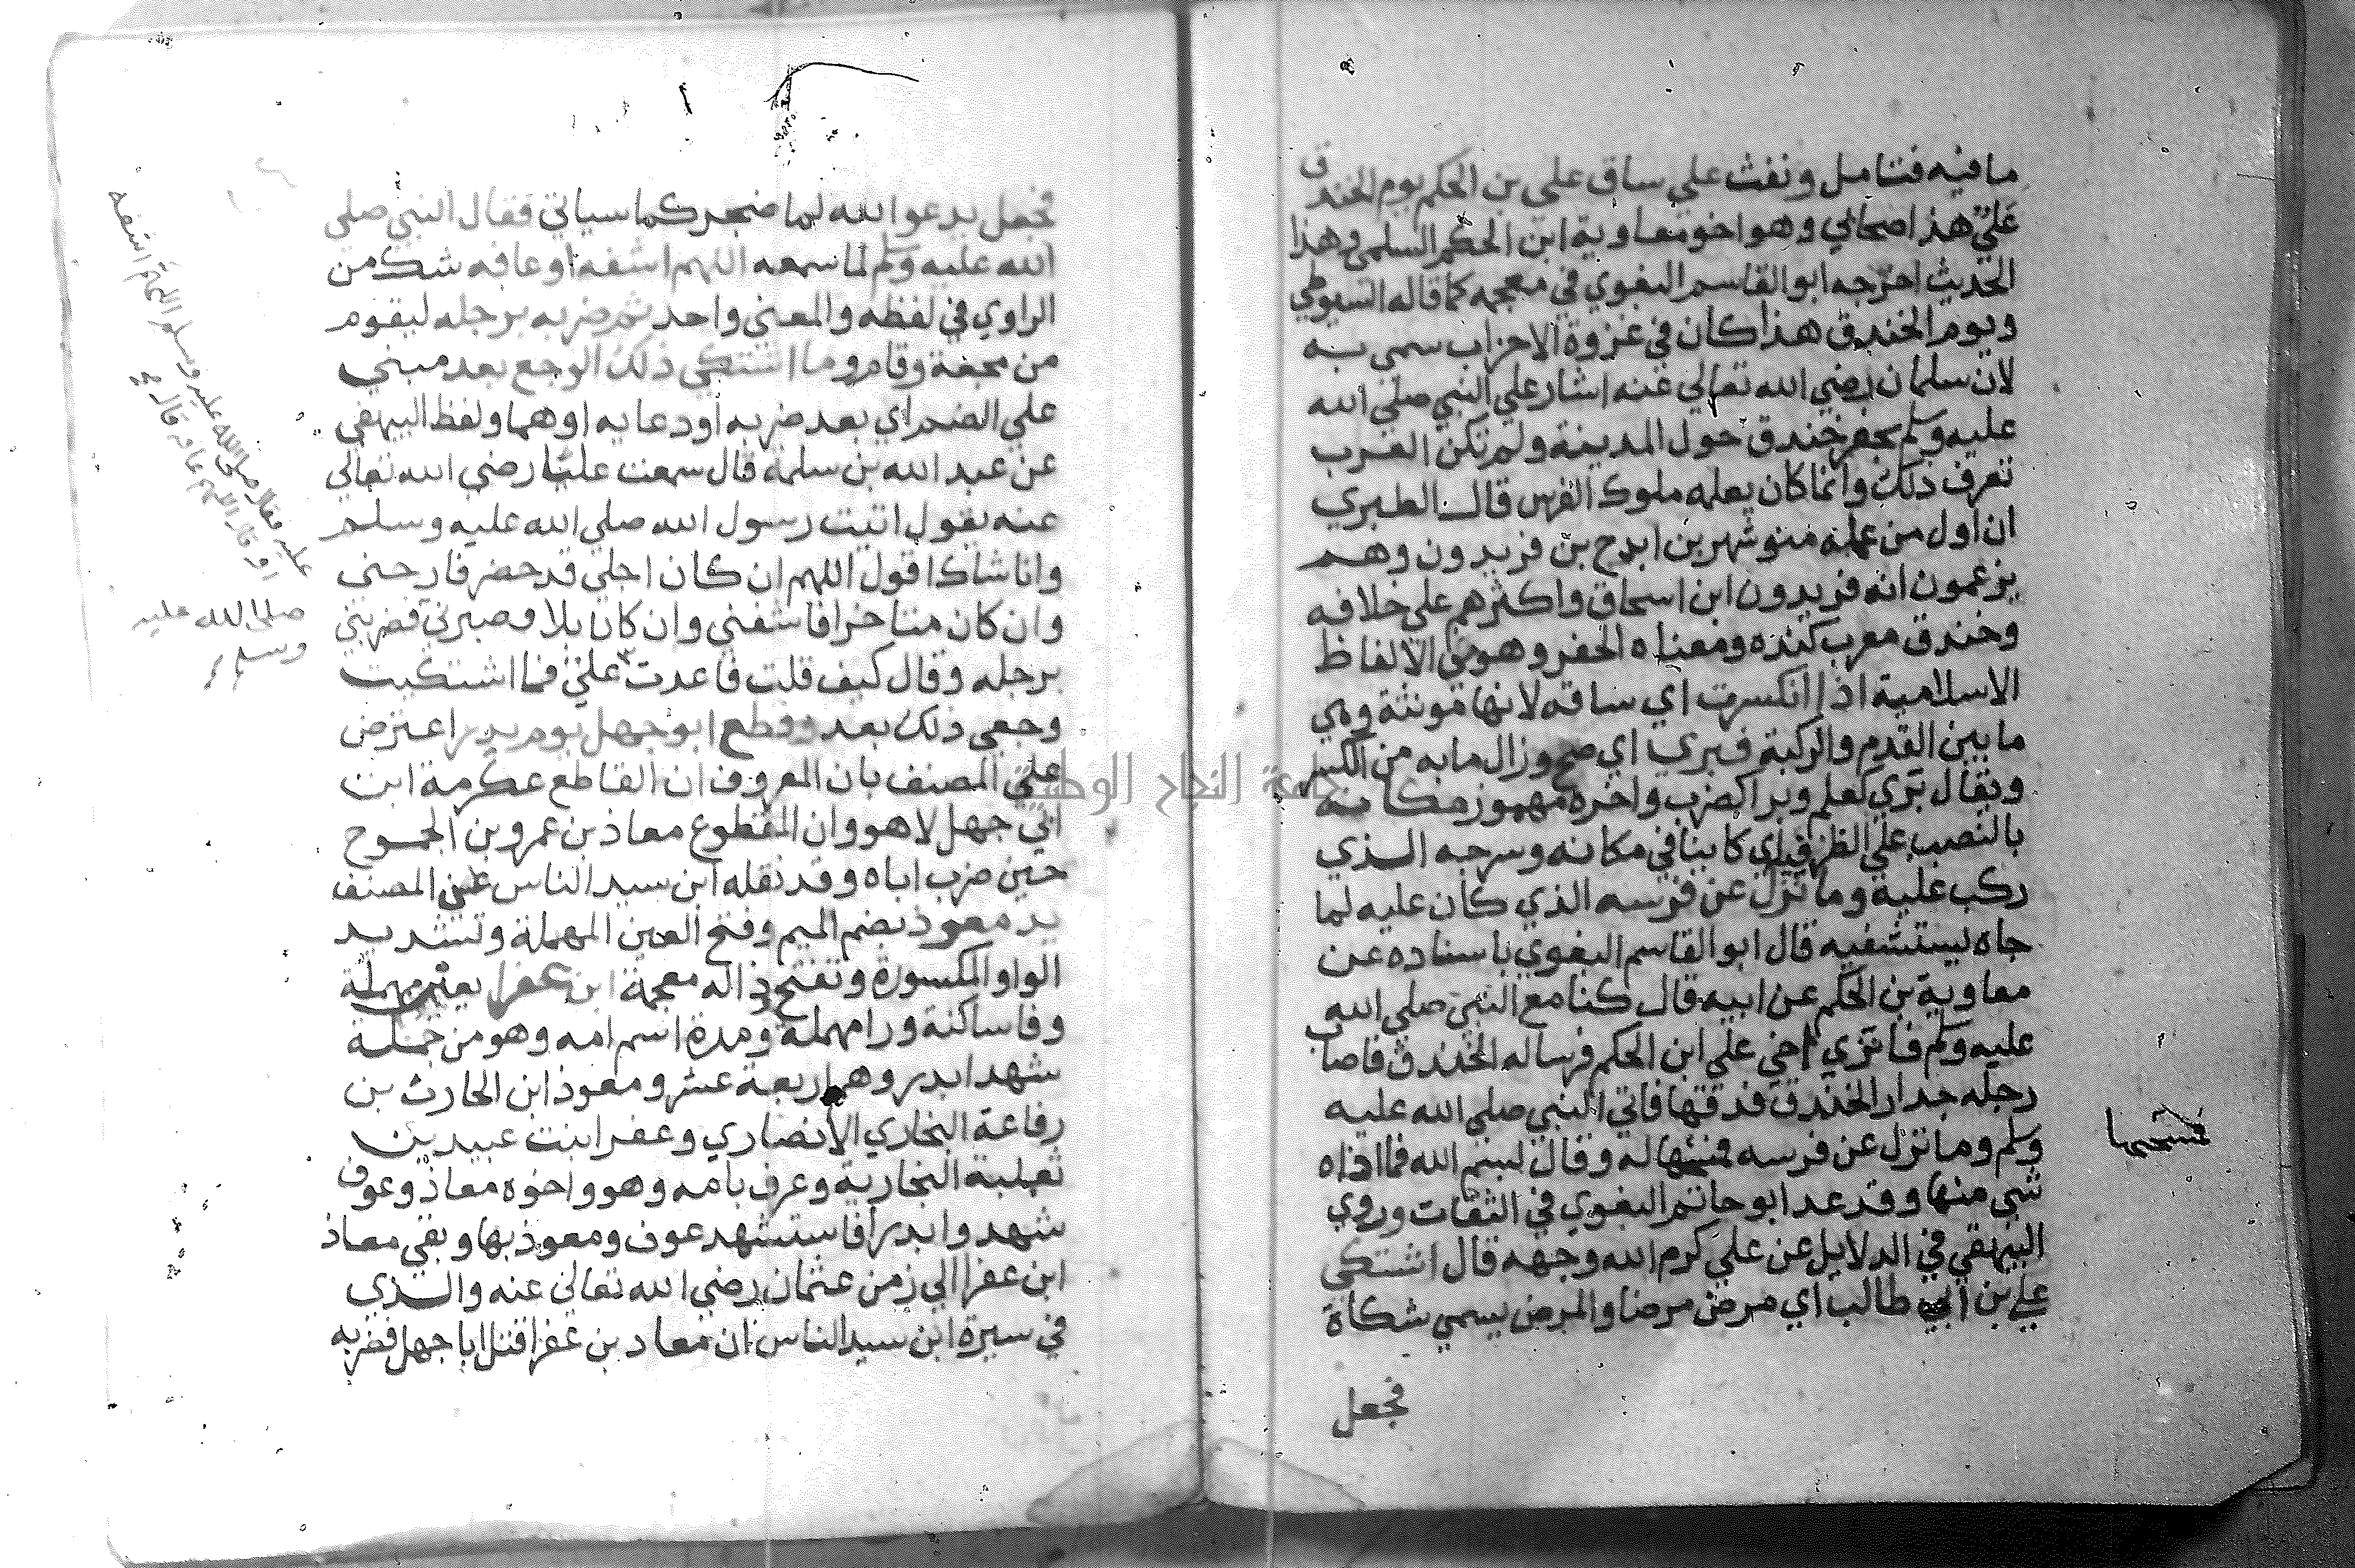 ما فيه فتامل ونفث علي ساق علي بن الحكم يوم الخندق
علي هذا صحابي وهو اخو معاوية ابن الحكم السلمي وهذا
الحديث اخرجه ابو القاسم البغوي في معجمه كما قاله السيوطي
ويوم الخندق هذا كان في غزوة الاحزاب سمي به
لان سلمان رضي الله تعالي عنه اشار علي النبي صلي الله
عليه وسلم بحفر خندق حول المدينة ولم تكن العرب
تعرف ذلك وانما كان يعلمه ملوك الفرس قال الطبري
ان اول من عمله منوشهر بن ايرج بن فريدون وهم
يزعمون انه فريدون ابن اسحاق واكثرهم علي خلافه
وخندق معرب كنده ومعناه الحفر وهو من الالفاظ
الاسلامية اذا انكسرت اي ساقه لانها مونثة وهي
ما بين القدم والركبة فبري اي صح وزال ما به من الكسر
ويقال بري كعلم وبرا كضرب واخره مهموز مكانه
بالنصب علي الظرفية اي كاينا في مكانه وسرجه الذي
ركب عليه وما نزل عن فرسه الذي كان عليه لما
جاه يستشفيه قال ابو القاسم البغوي باسناده عن
معاوية بن الحكم عن ابيه قال كنا مع النبي صلي الله
عليه وسلم فانزي اخي علي ابن الحكم فرسا له الخندق فاصاب
رجله جدار الخندق فدقتها فاتي النبي صلي الله عليه
وسلم وما نزل عن فرسه فمسحها له وقال بسم الله فما اذاه
شي منها وقد عد ابو حاتم البغوي في الثقات وروي
البيهقي في الدلايل عن علي كرم الله وجهه قال اشتكي
علي بن ابي طالب اي مرض مرضا والمرض يسمي شكاة
فجعل
فمسحها
فجعل يدعوا الله لما ضجر كما سياتي فقال النبي صلي
الله عليه وسلم لما سمعه اللهم اشفه او عافه شك من
الراوي في لفظه والمعني واحد ثم ضربه برجله ليقوم
من ضجعه وقام وما اشتكي ذلك الوجع بعد مبني
علي الضم اي بعد ضربه او دعايه او هما ولفظ البيهقي
عن عبد الله بن سلمة قال سمعت عليا رضي الله تعالي
عنه يقول اتيت رسول الله صلي الله عليه وسلم
وانا شاك اقول اللهم ان كان اجلي قد حضر فارحني
وان كان متاخرا فاشفني وان كان بلا فصبرني فضربني
برجله وقال كيف قلت فاعدت علي فما اشتكيت
وجعي ذلك بعد وقطع ابو جهل يوم بدر اعترض
علي المصنف بان المعروف ان القاطع عكرمة ابن
ابي جهل لا هو وان المقطوع معاذ بن عمرو بن الجموح
حين ضرب اباه وقد نقله ابن سيد الناس عن المصنف
يد معوذ بضم الميم وفتح العين المهملة وتشديد
الواو المكسورة وتفتح وذاله معجمة ابن عفرا بعين مهملة
وفا ساكنة ورا مهملة ومدة اسم امه وهو من جملة
شهدا بدر وهم اربعة عشر ومعوذ ابن الحارث بن
رفاعة النجاري الانصاري وعفرا بنت عبيد بن
ثعلبة النجارية وعرف بامه وهو واخوه معاذ وعوف
شهدوا بدرا فاستشهد عوف ومعوذ بها وبقي معاذ
ابن عفرا الي زمن عثمان رضي الله تعالي عنه والذي
في سيرة ابن سيد الناس ان معاذ بن عفرا قتل ابا جهل فضربه
صلي الله عليه
وسلم
جامعة النجاح الوطنية